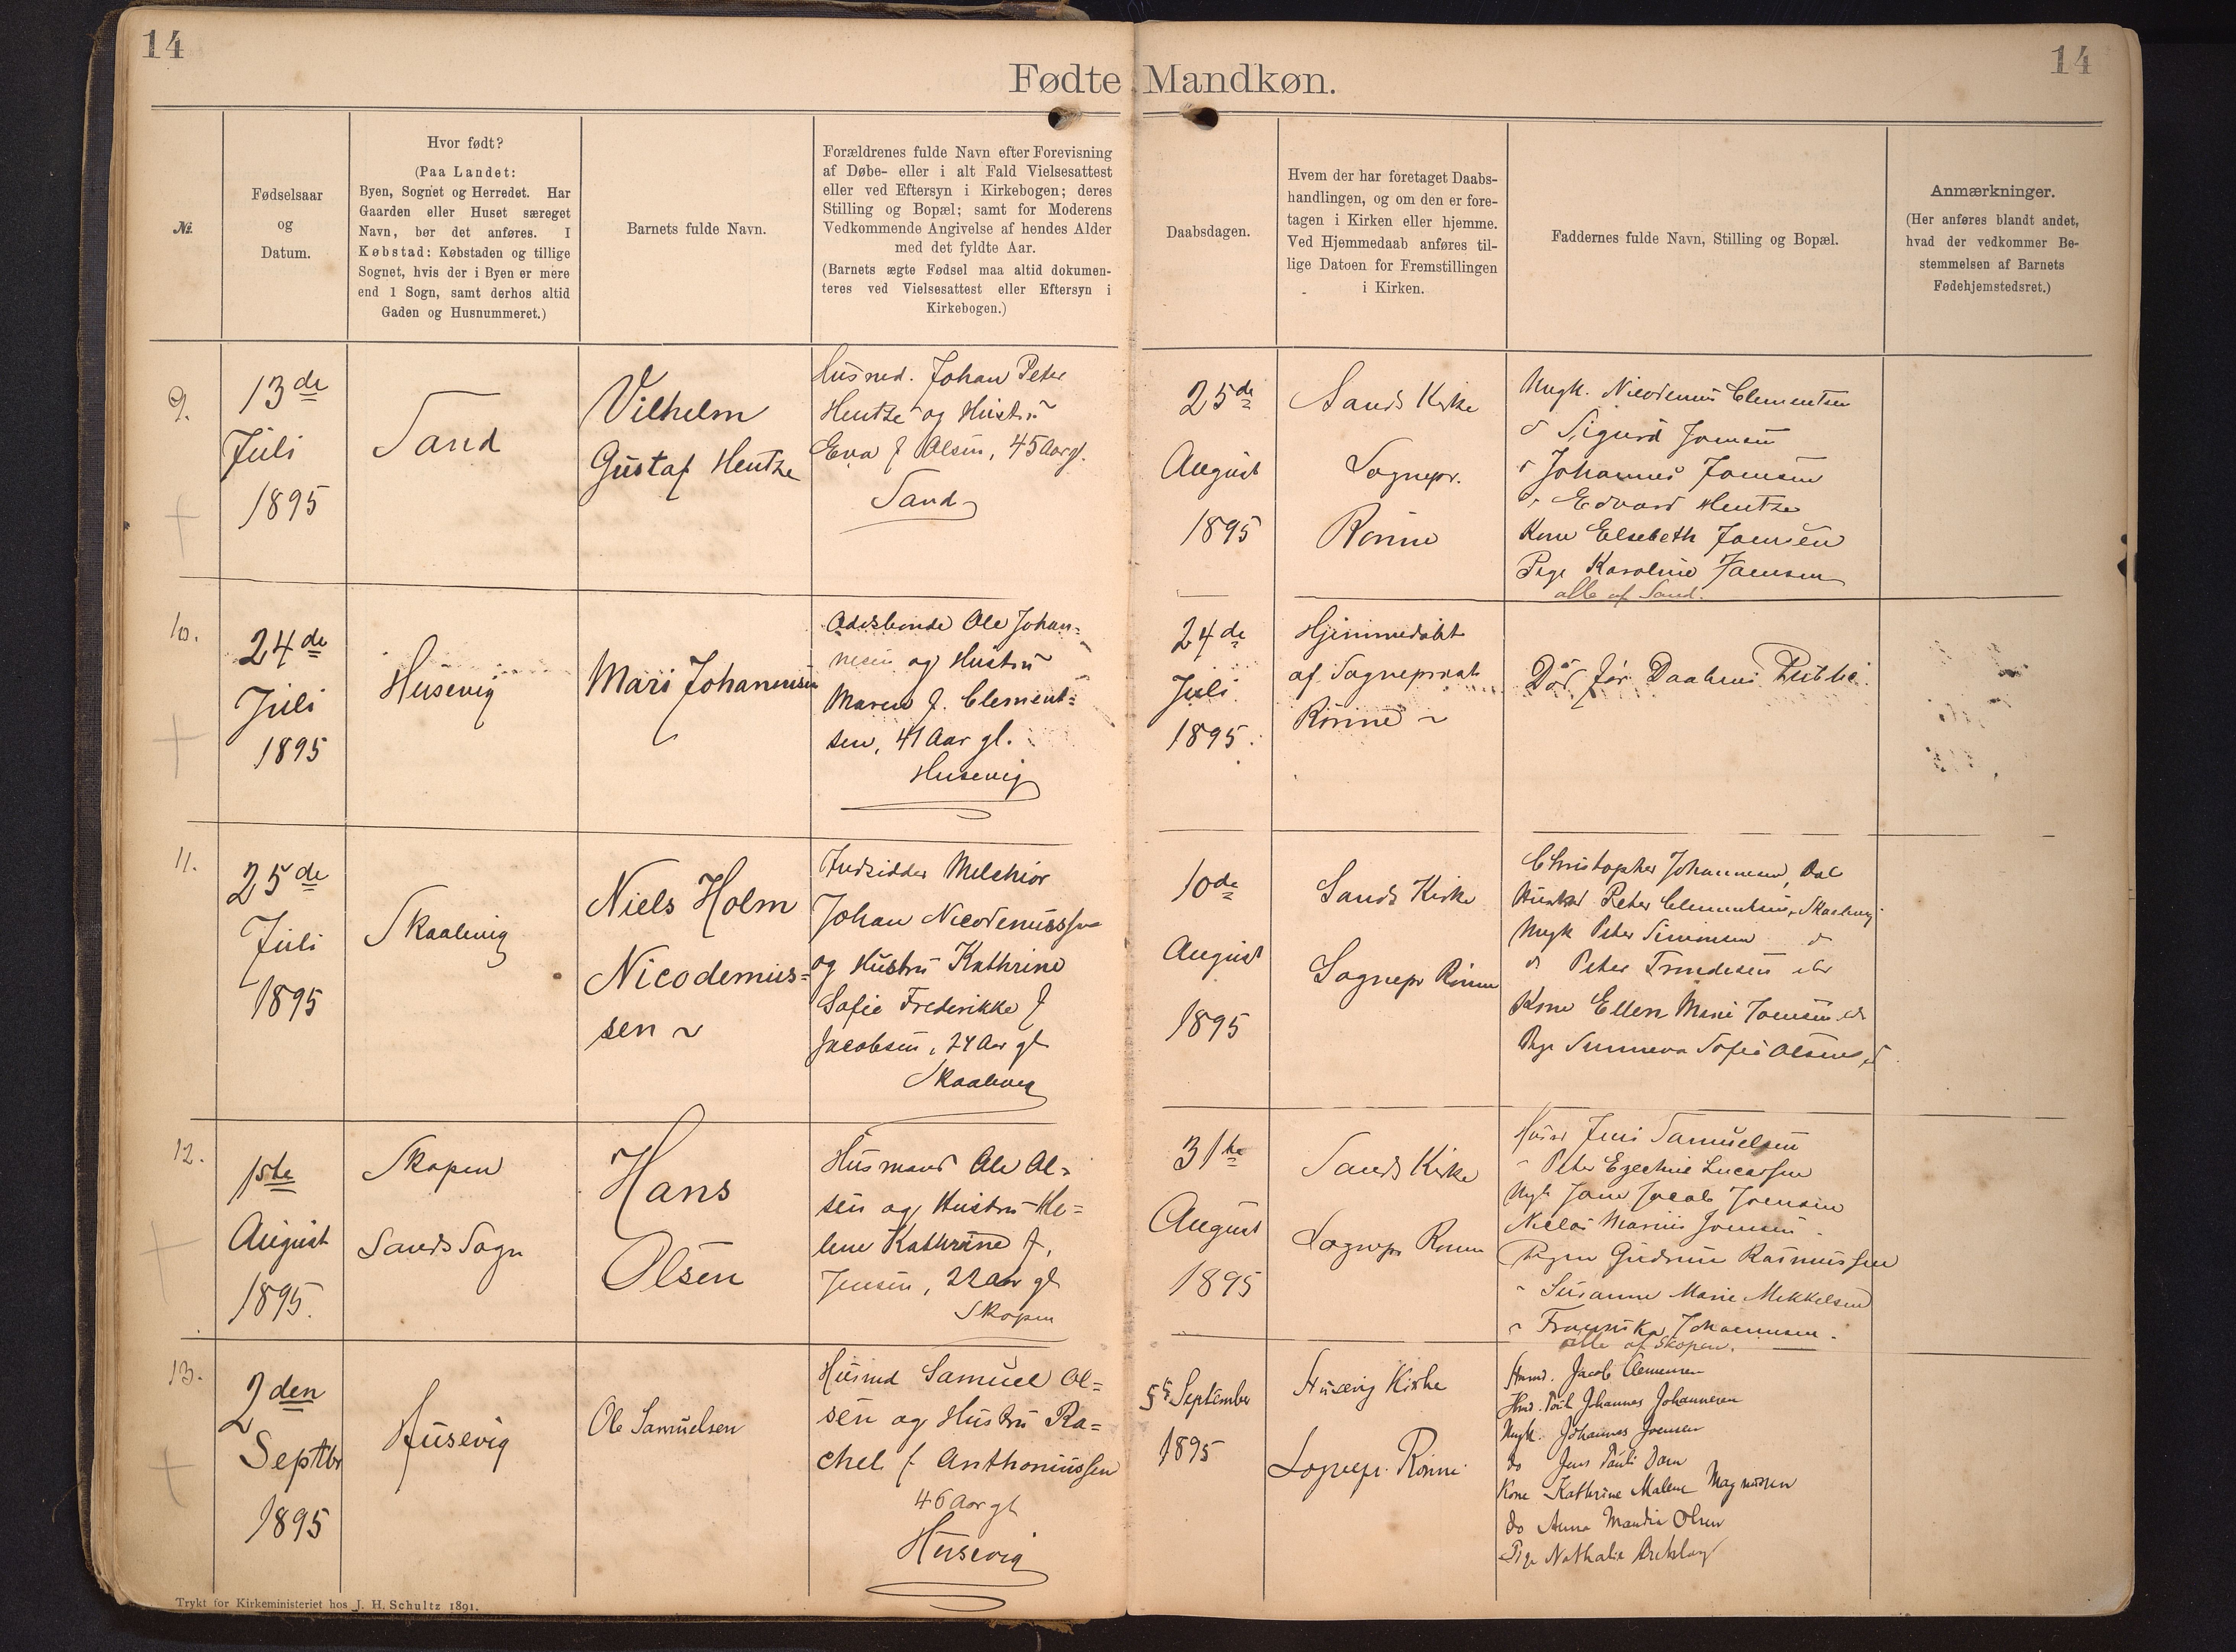 14
14
Fødte Mandkøn.
No.
Fødselsaar
og
Datum.
Hvor født?
(Paa Landet:
Byen, Sognet og Herredet. Har
Gaarden eller Huset særeget
Navn, bør det anføres. I
Købstad: Købstaden og tillige
Sognet, hvis der i Byen er mere
end 1 Sogn, samt derhos altid
Gaden og Husnummeret.)
Barnets fulde Navn.
Forældrenes fulde Navn efter Forevisning
af Døbe- eller i alt Fald Vielsesattest
eller ved Eftersyn i Kirkebogen; deres
Stilling og Bopæl; samt for Moderens
Vedkommende Angivelse af hendes Alder
med det fyldte Aar.
(Barnets ægte Fødsel maa altid dokumen-
teres ved Vielsesattest eller Eftersyn i
Kirkebogen.)
Daabsdagen.
Hvem der har foretaget Daabs-
handlingen, og om den er fore-
tagen i Kirken eller hjemme.
Ved Hjemmedaab anføres til-
lige Datoen for Fremstillingen
i Kirken.
Faddernes fulde Navn, Stilling og Bopæl.
Anmærkninger.
(Her anføres blandt andet,
hvad der vedkommer Be-
stemmelsen af Barnets
Fødehjemstedsret.)
9.
13de
Juli
1895
Sand
Vilhelm
Gustaf Hentze
Husmd. Johan Peter
Hentze og Hustru
Eva f Olsen, 45 Aar gl.
Sand
25de
August
1895
Sands Kirke
Sognepr.
Rönne
Ungk. Nicodemus Clementsen
d Sigurd Joensen
d Johannes Joensen
d Edvard Hentze
Kone Elsebeth Joensen
Pige Karoline Joensen
alle af Sand.
10.
24de
Juli
1895
Husevig
Mari Johannesen
Odelsbonde Ole Johan=
nesen og Hustru
Maren f. Clement=
sen, 41 Aar gl.
Husevig
24de
Juli
1895.
Hjemmedøbt
af Sognepræst
Rönne
Død før Daabens Public.
11.
25de
Juli
1895
Skaalevig
Niels Holm
Nicodemus=
sen
Indsidder Melchior
Johan Nicodemussen
og Hustru Kathrine
Sofie Frederikke f
Jacobsen, 24 Aar gl
Skaalevig
10de
August
1895
Sands Kirke
Sognepr Rönne
Christopher Johannesen, Dal
Peter Clementsen, Skaalevig
Ungk Peter Simonsen d
d Peter Trondesen
Kone Ellen Marie Joensen
Pige Sunneva Sofie Olsen, d
12.
1ste
August
1895.
Skopen
Sands Sogn
Hans
Olsen
Husmand Ole Ol=
sen og Hustru He=
lene Kathrine f.
Jensen, 22 Aar gl
Skopen
31te
August
1895
Sands Kirke
Sognepr Rönne
Husmd Jens Samuelsen
" Peter Ezechiel Lucassen
Ungk Joen Jacob Joensen
Niclas Marius Joensen
Pigen Gudrun Rasmussen
" Susanne Marie Mikkelsen
" Franziska Johannesen.
alle af Skopen.
13.
2den
Septbr
1895
Husevig
Ole Samuelsen
Husmd Samuel Ol=
sen og Hustru Ra=
chel f Anthoniussen
46 Aar gl
Husevig
5te September
1895
Husevig Kirke
Sognepr. Rönne
Husmd. Jacob Clemensen
Husmd. Poul Johannes Johannesen
Ungk. Johannes Joensen
do Jens Pauli Dam
Kone Kathrine Malene Magnussen
do Anna Maudia Olsen
Pige Nathalia
Trykt for Kirkeministeriet hos J. H. Schultz 1891.